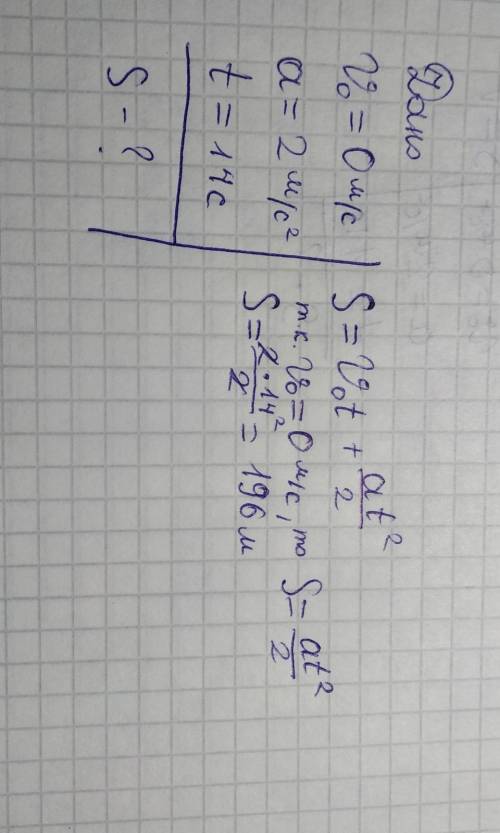 Дано
V₀ = 0 м/с
a = 2 м/с²
t = 14 с
S - ?
S = V₀t + at²/2
т.к. V₀ = 0 м/с, то S = at²/2
S = 2·14²/2 = 196 м